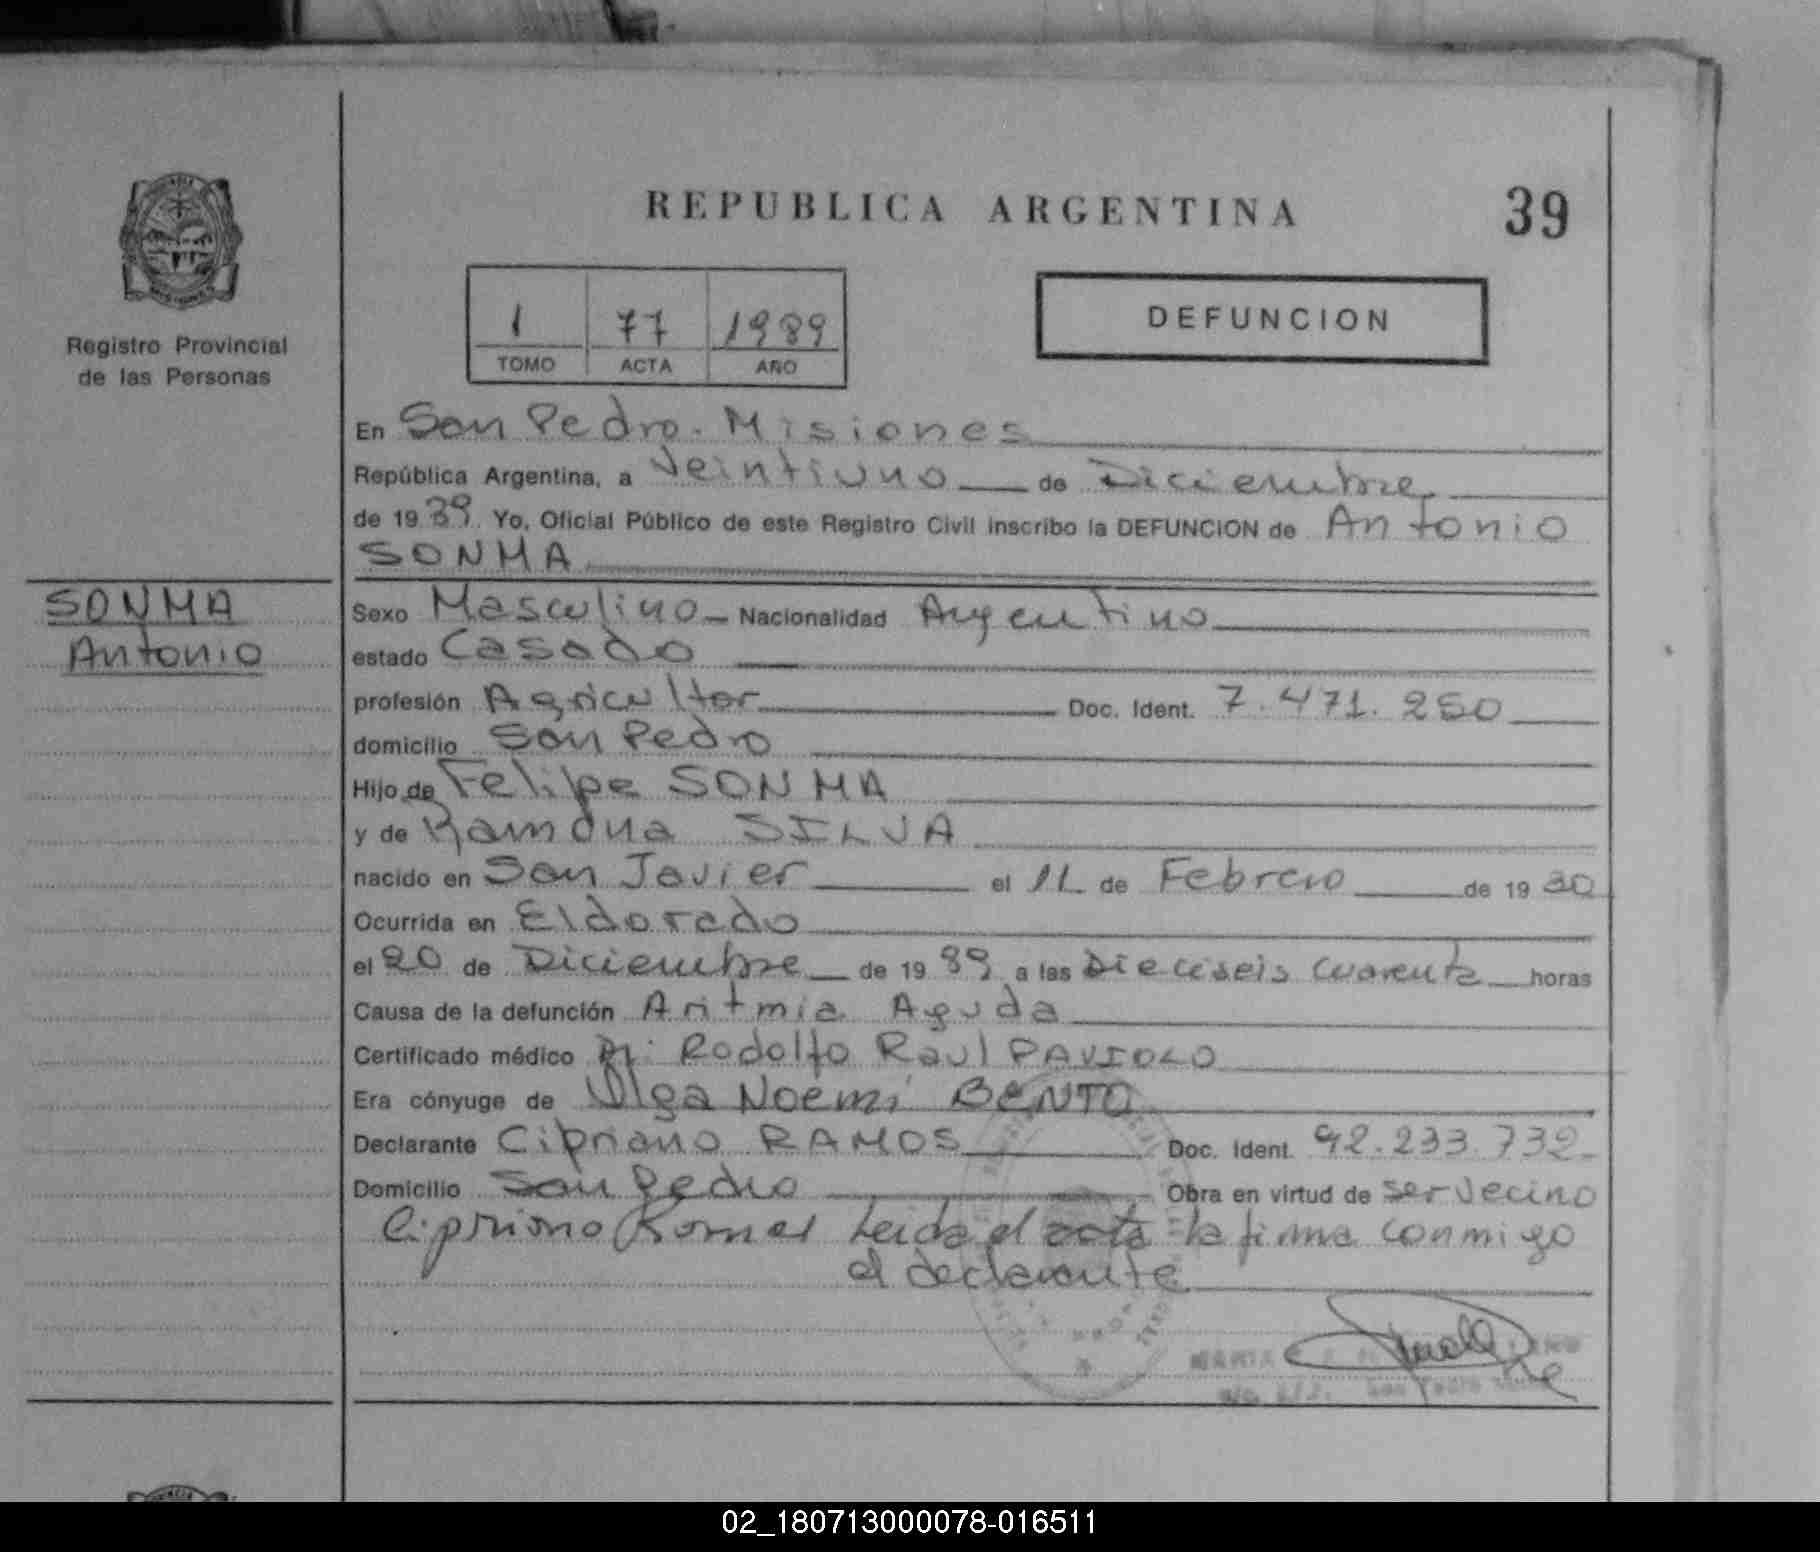 REPUBLICA ARGENTINA
39
Registro Provincial
de las Personas
1 77 1989
TOMO ACTA AÑO
DEFUNCION
En San Pedro. Misiones
República Argentina, a Veintiuno de Diciembre
de 1989 Yo, Oficial Público de este Registro Civil inscribo la DEFUNCION de Antonio
SONMA
SONMA
Antonio
Sexo Masculino Nacionalidad Argentino
estado Casado
profesión Agricultor Doc. Ident. 7.471.250
domicilio San Pedro
Hijo de Felipe SONMA
y de Ramona SILVA
nacido en San Javier el 11 de Febrero de 1930
Ocurrida en Eldorado
el 20 de Diciembre de 1989 a las Dieciseis cuarenta horas
Causa de la defunción Aritmia Aguda
Certificado médico Dr: Rodolfo Raul PAVIOLO
Era cónyuge de Olga Noemi BENTO
Declarante Cipriano RAMOS Doc. Ident. 92.233.732
Domicilio San Pedro Obra en virtud de ser vecino
Cipriano Ramos Leida el acta la firma conmigo
el declarante
MARIA
San Pedro
02_180713000078-016511